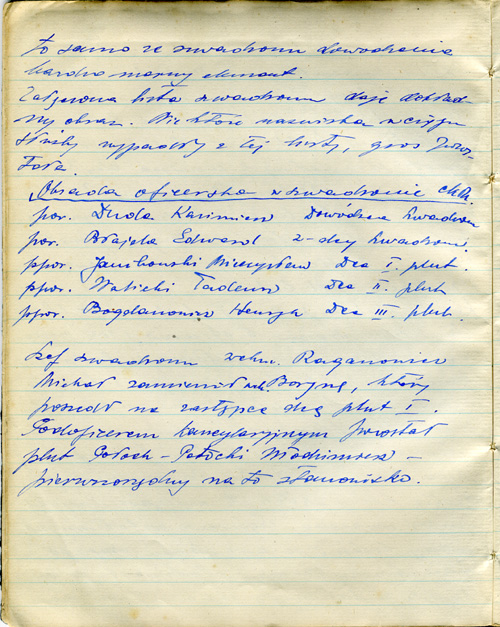 to samo ze szwadronu dowodzenia
bardzo marny element.
Załączona lista szwadronu daje dokład-
ny obraz. Niektóre nazwiska w ciągu
służby wypadły z tej listy, gros pozos-
tała.
Obsada oficerska w szwadronie
por. Duda Kazimierz Dowódca szwadron
por. Brajeta Edward 2-dcy szwadronu.
ppor. Janikowski Mieczysław Dca I. plut.
ppor. Walicki Tadeusz Dca II. plut
ppor. Bogdanowicz Henryk Dca III. plut.
Szef szwadronu wchm. Raganowicz
Michał zamienił Borynę, który
poszedł na zastępcę dcy plut I.
Podoficerem kancelaryjnym pozostał
plut Potocki Włodzimierz -
pierwszorzędny na to stanowisko.